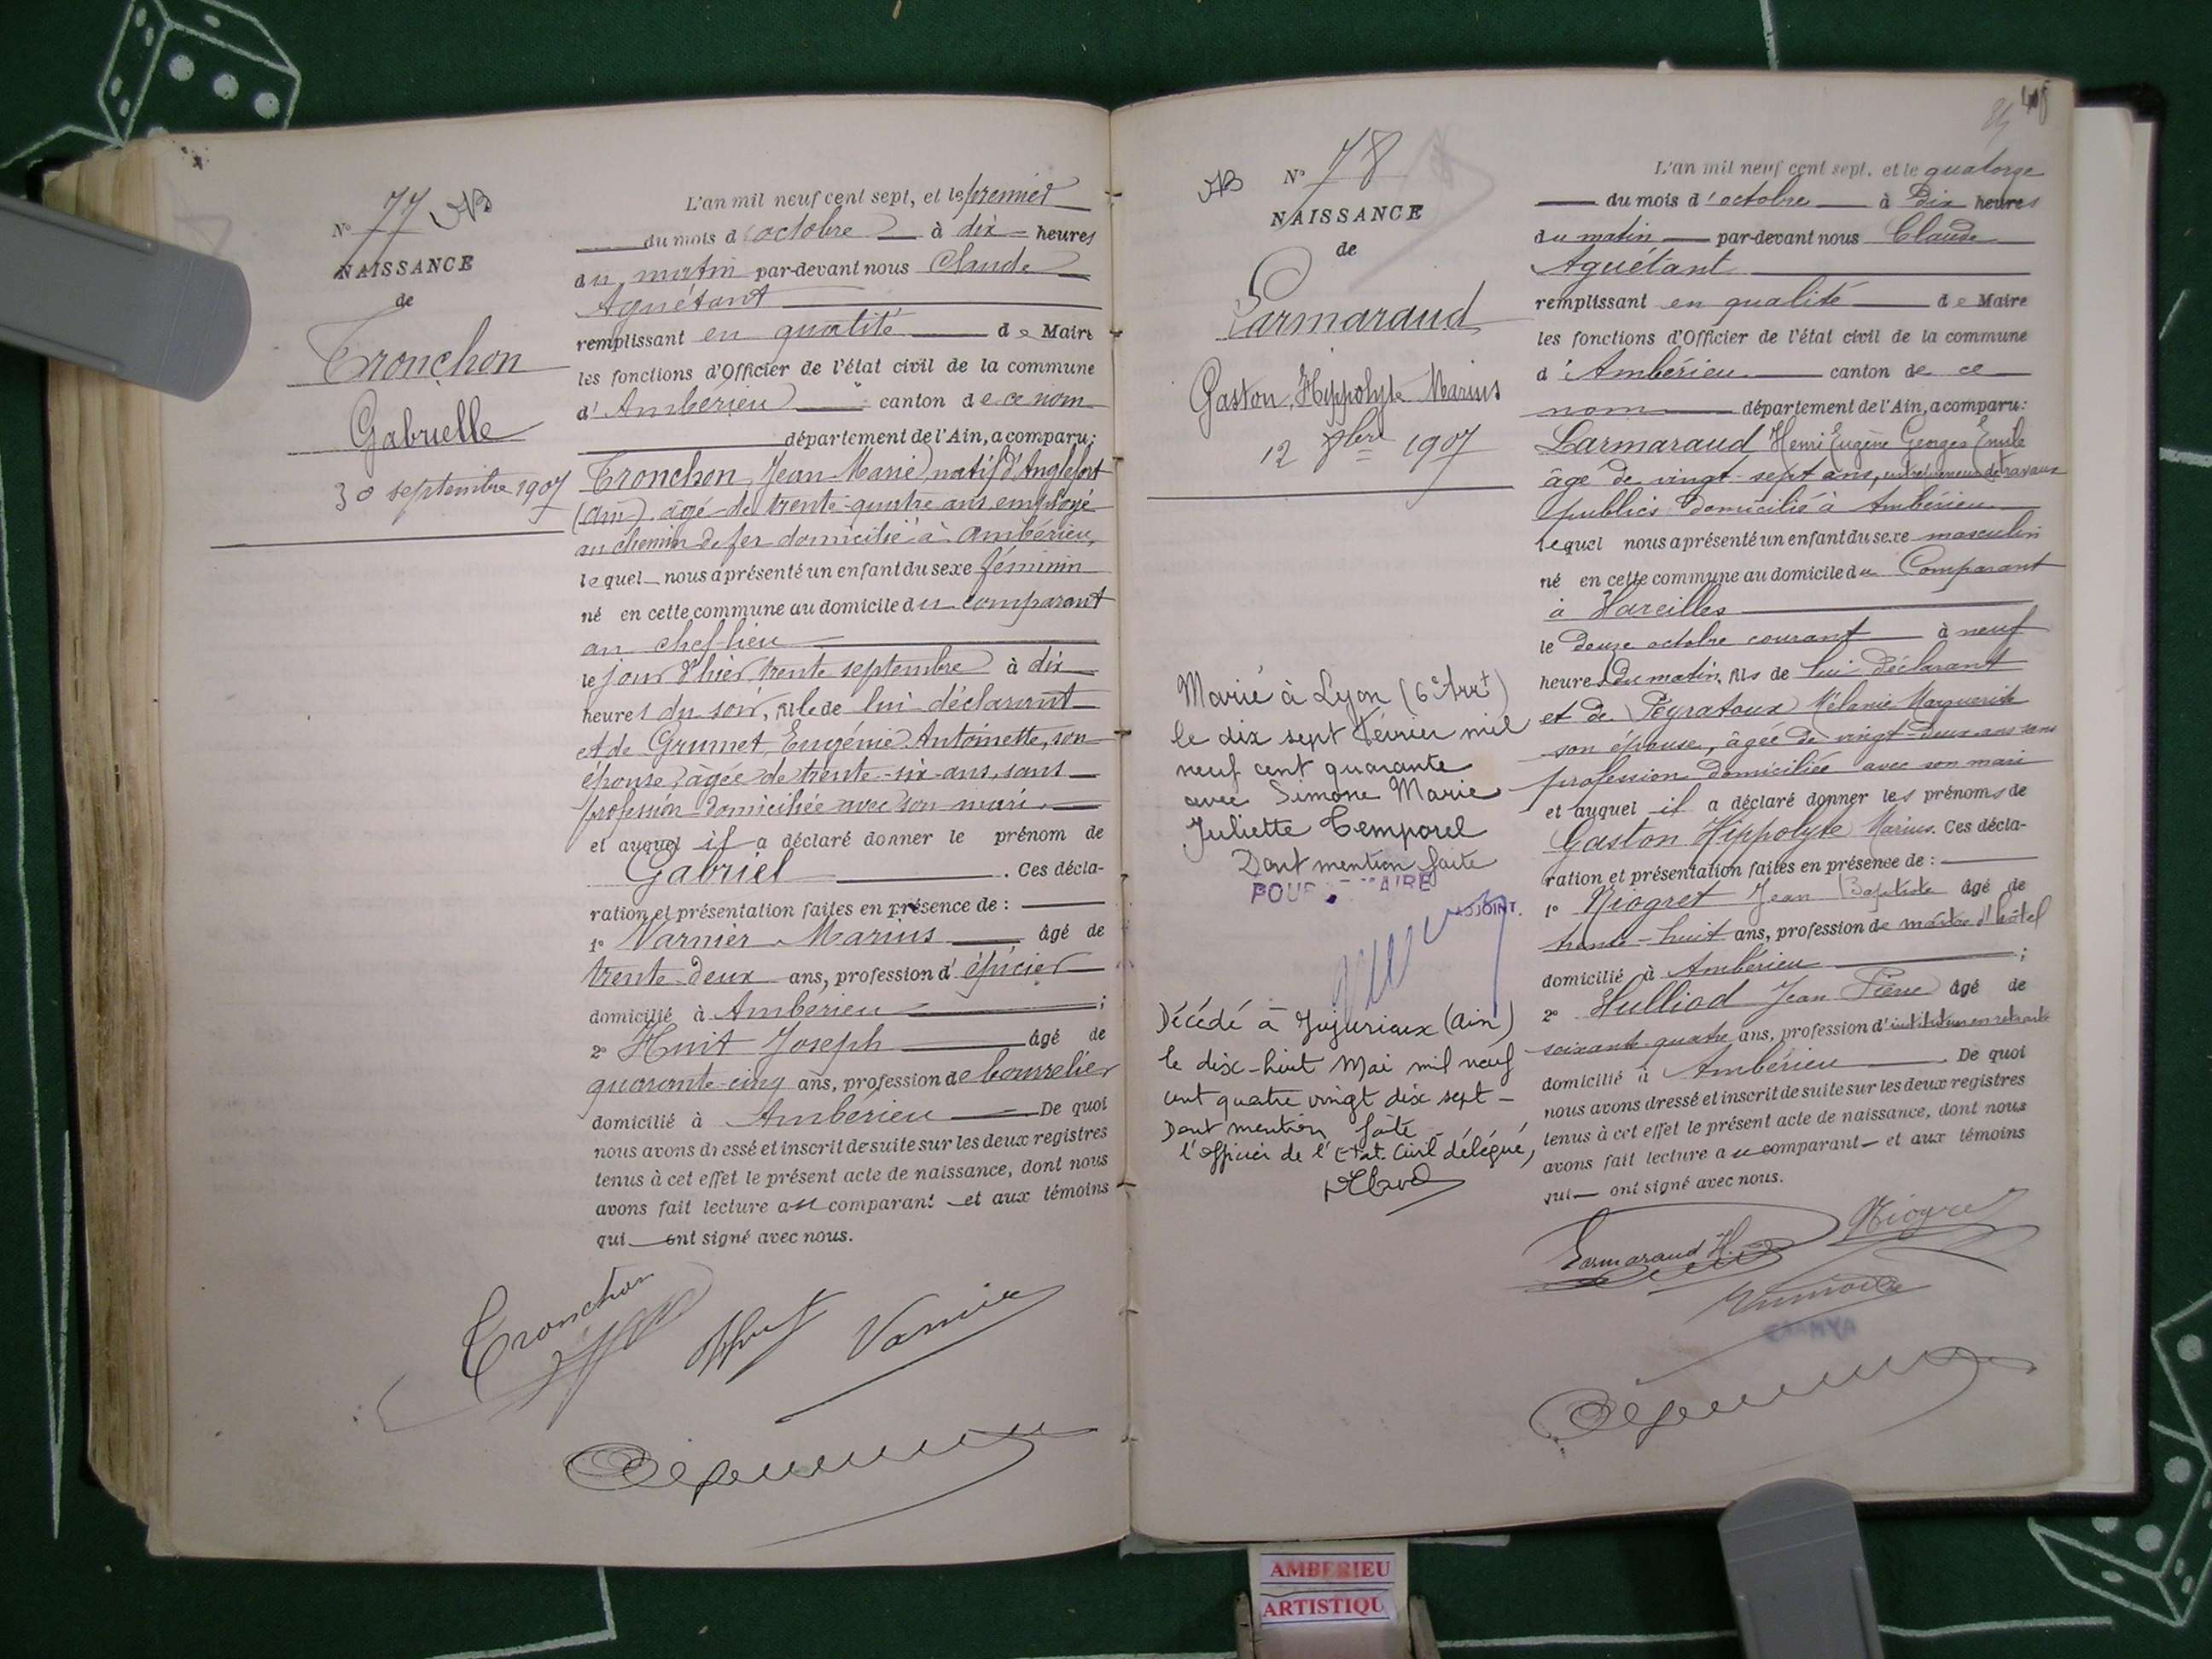 N° 77
NAISSANCE
de
Tronchon
Gabrielle
30 septembre 1907
L'an mil neuf cent sept, et le premier
du mois d'octobre à dix heures
du matin par-devant nous Claude
Aguétant
remplissant en qualité de Maire
les fonctions d'Officier de l'état civil de la commune
d'Ambérieu canton de ce nom
département de l'Ain, a comparu:
Tronchon Jean-Marie, natif d'Anglefort
(Ain) âgé de trente-quatre ans employé
au chemin de fer domicilié à Ambérieu,
lequel nous a présenté un enfant du sexe féminin
né en cette commune au domicile du comparant
au chef-lieu
le jour d'hier trente septembre à dix
heures du soir, fille de lui déclarant
et de Grumet, Eugénie Antoinette, son
épouse, âgée de trente-six ans, sans
profession domiciliée avec son mari.
et auquel il a déclaré donner le prénom de
Gabriel. Ces décla-
ration et présentation faites en présence de :
1° Varnier Marius âgé de
trente deux ans, profession d'épicier
domicilié à Ambérieu ;
2° Huit Joseph âgé de
quarante-cinq ans, profession de bourrelier
domicilié à Ambérieu De quoi
nous avons dressé et inscrit de suite sur les deux registres
tenus à cet effet le présent acte de naissance, dont nous
avons fait lecture au comparant et aux témoins
qui ont signé avec nous.
Tronchon
Huit Varnier
N° 78
NAISSANCE
de
Larmaraud
Gaston, Hippolyte Marius
12 8bre 1907
Marié à Lyon (6e Arrt)
le dix sept février mil
neuf cent quarante
avec Simone Marie
Juliette Temporel
Dont mention faite
POUR MAIRE
ADJOINT.
Décédé à Jujurieux (Ain)
le dix-huit Mai mil neuf
cent quatre vingt dix sept -
Dont mention faite
l'officier de l'Etat Civil délégué,
L'an mil neuf cent sept, et le quatorze
du mois d'octobre à Dix heures
du matin par-devant nous Claude
Aguétant
remplissant en qualité de Maire
les fonctions d'Officier de l'état civil de la commune
d'Ambérieu canton de ce
nom département de l'Ain, a comparu:
Larmaraud Henri Eugène Georges Emile
âgé de vingt-sept ans, entrepreneur de travaux
publics domicilié à Ambérieu
lequel nous a présenté un enfant du sexe masculin
né en cette commune au domicile du Comparant
à Vareilles
le douze octobre courant à neuf
heures du matin, fils de lui déclarant
et de Peyratoux Mélanie Marguerite
son épouse, âgée de vingt-deux ans sans
profession domiciliée avec son mari
et auquel il a déclaré donner les prénoms de
Gaston Hippolyte Marius. Ces décla-
ration et présentation faites en présence de :
1° Niogret Jean Baptiste âgé de
trente-huit ans, profession de maître d'hôtel
domicilié à Ambérieu ;
2° Hulliod Jean Pierre âgé de
soixante quatre ans, profession d'instituteur en retraite
domicilié à Ambérieu. De quoi
nous avons dressé et inscrit de suite sur les deux registres
tenus à cet effet le présent acte de naissance, dont nous
avons fait lecture au comparant et aux témoins
qui ont signé avec nous.
Larmaraud H. Niogret
AMBERIEU
ARTISTIQU